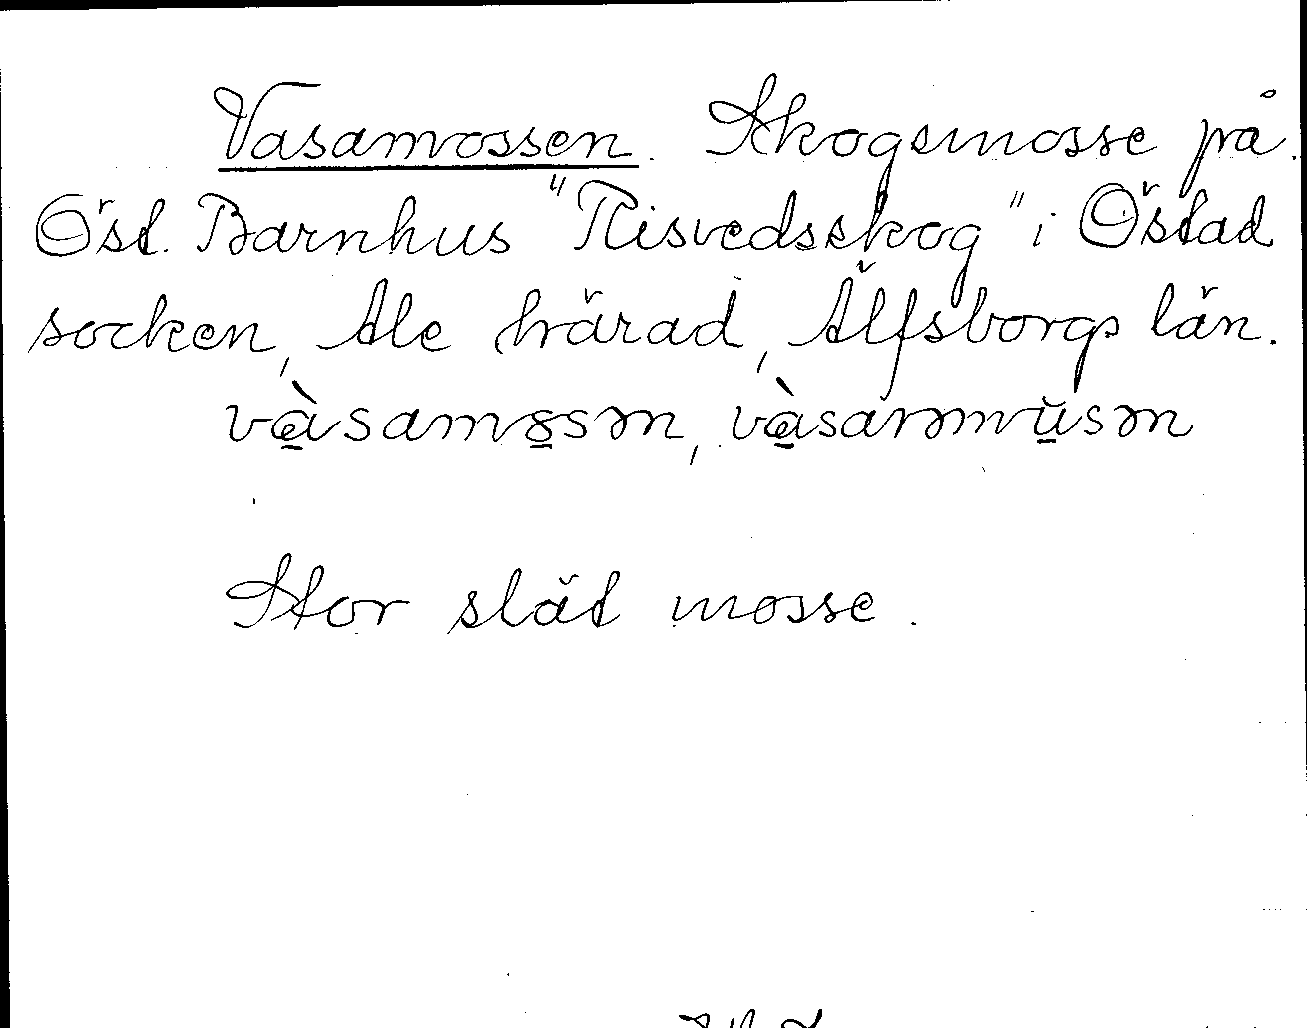 Vasamossen. Skogsmosse på
Öst. Barnhus "Risvedsskog" i Östad
socken, Ale härad, Älfsborgs län.
và̱samo̱sən, và̱sarəmŭ̱sən
Stor slät mosse.